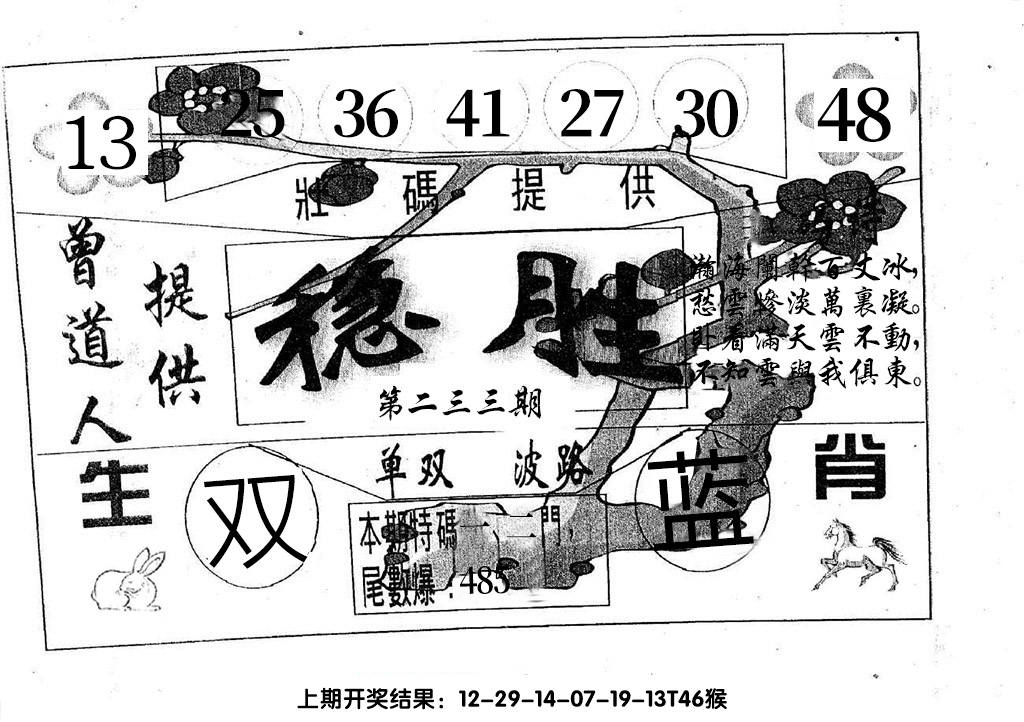 13 25 36 41 27 30 48
壯碼提供
曾道人
提供
稳胜
第二三三期
特
瀚海闌幹百丈冰，
愁雲慘淡萬裏凝。
卧看滿天雲不動，
不知雲與我俱東。
单双 波路
生肖
双
蓝
本期特碼一、二門，
尾數爆：485
上期开奖结果：12-29-14-07-19-13T46猴